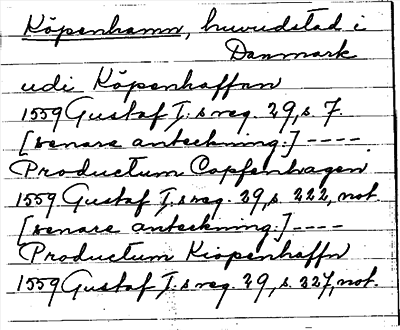 Köpenhamn, huvudstad i
Danmark
udi Köpenhaffan
1559 Gustaf I:s reg. 29, s. 7.
[senare anteckning:] ----
Productum Copfenhagen
1559 Gustaf I:s reg. 29, s. 222, not.
[senare anteckning:] ----
Productum Kiopenhaffn
1559 Gustaf I:s reg. 29, s. 227, not.